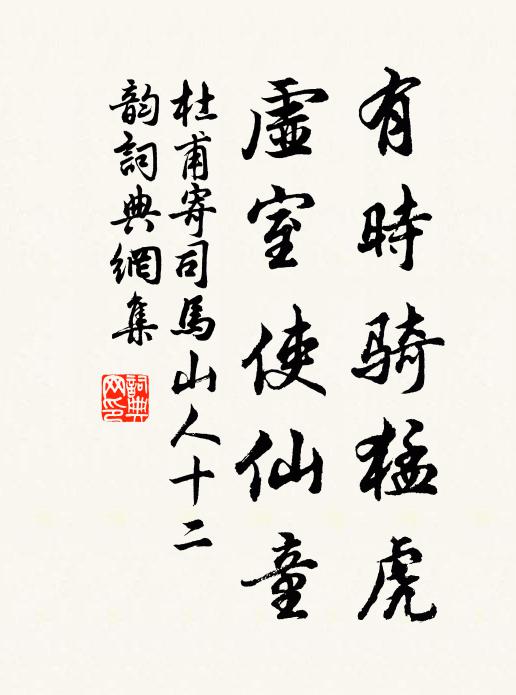 有時騎猛虎
虛室使仙童
杜甫寄司馬山人十二
韵詞典網集
詞典
网印